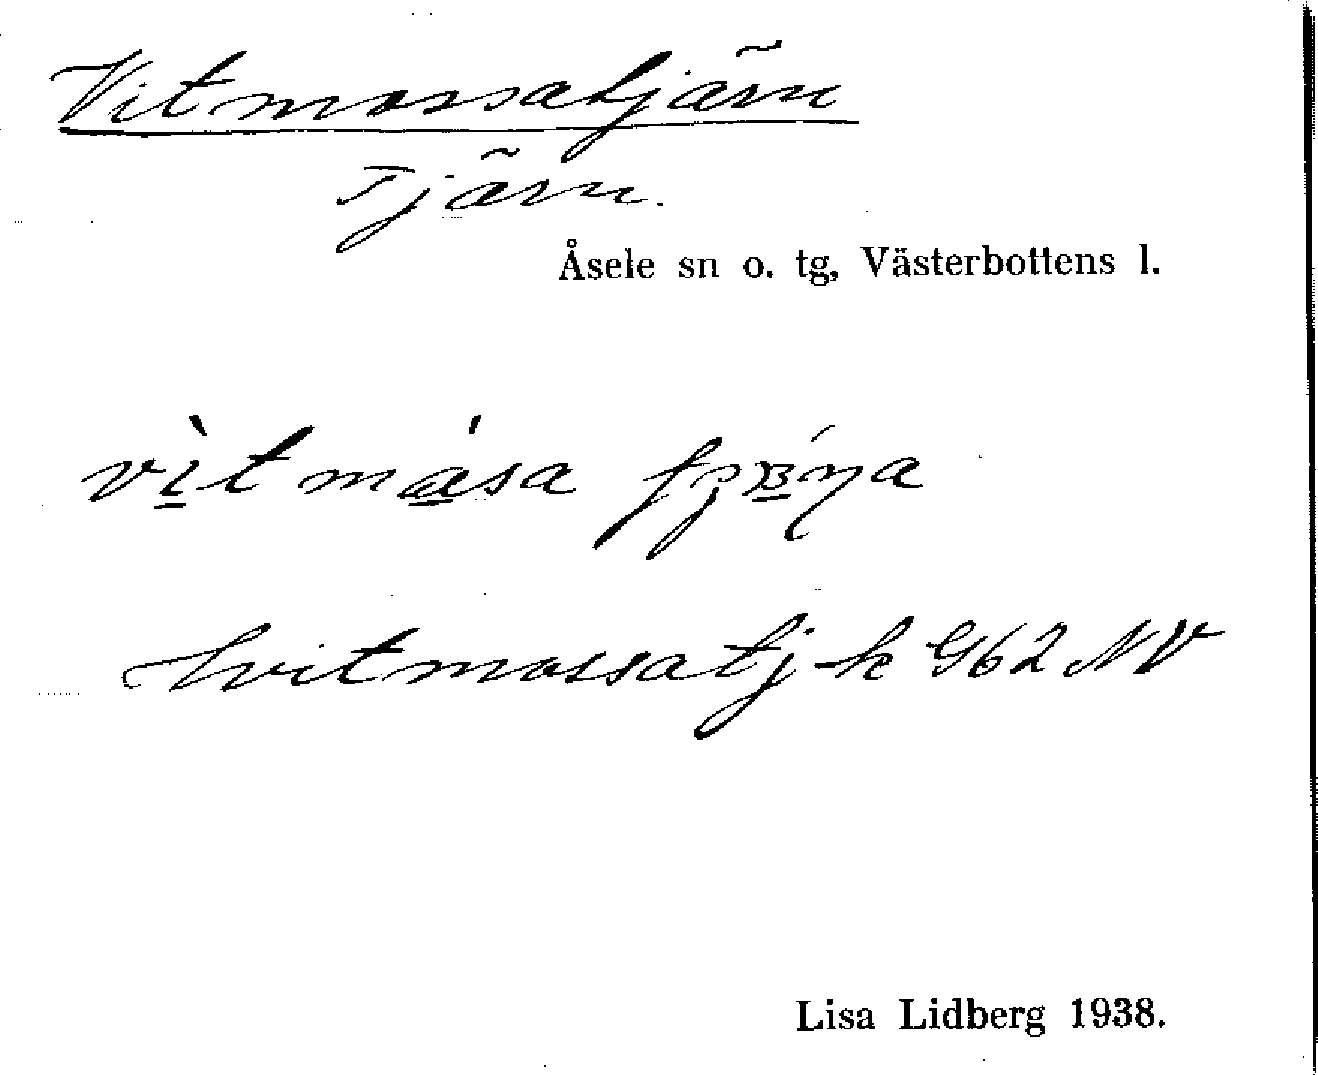 Vitmossatjärn
Tjärn.
Åsele sn o. tg, Västerbottens l.
Hvitmossatj-k G62 NV
Lisa Lidberg 1938.